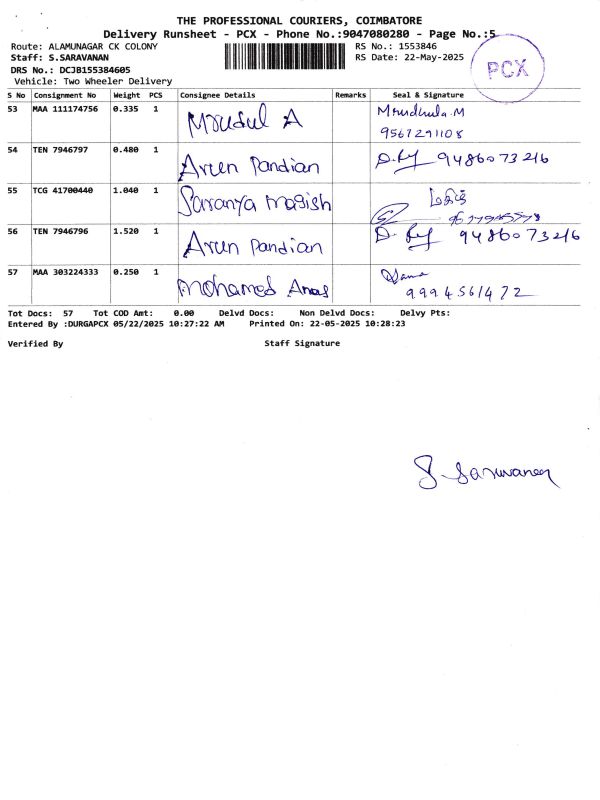 THE PROFESSIONAL COURIERS, COIMBATORE
Delivery Runsheet - PCX - Phone No.:9047080280 - Page No.:5
Route: ALAMUNAGAR CK COLONY
RS No.: 1553846
Staff: S.SARAVANAN
RS Date: 22-May-2025
DRS No.: DCJB155384605
Vehicle: Two Wheeler Delivery
PCX
S No Consignment No Weight PCS Consignee Details Remarks Seal & Signature
53 MAA 111174756 0.335 1 Mrudul A Mrudhula.M
9567291108
54 TEN 7946797 0.480 1 Arun Pandian 9486073216
55 TCG 41700440 1.040 1 Saranya Magish
56 TEN 7946796 1.520 1 Arun Pandian 9486073216
57 MAA 303224333 0.250 1 Mohamed Anas
9994561472
Tot Docs: 57 Tot COD Amt: 0.00 Delvd Docs: Non Delvd Docs: Delvy Pts:
Entered By :DURGAPCX 05/22/2025 10:27:22 AM Printed On: 22-05-2025 10:28:23
Verified By Staff Signature
S Saravanan